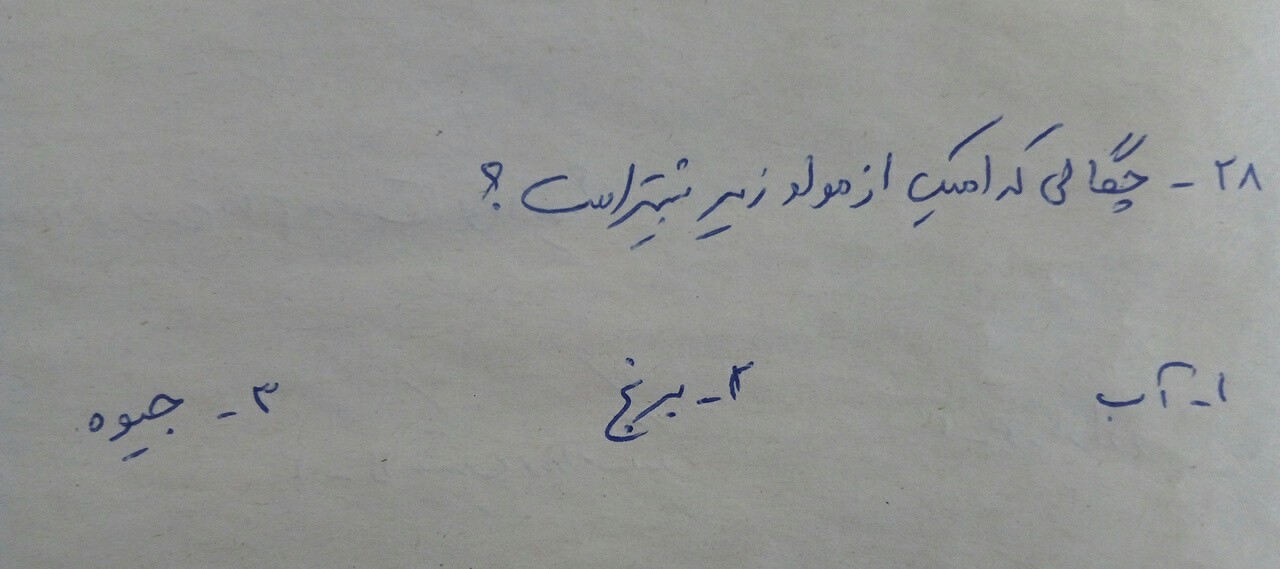 ۲۸ - چگالی کدامیک از مواد زیر بیشتر است؟
۱- آب ۲- برنج ۳- جیوه